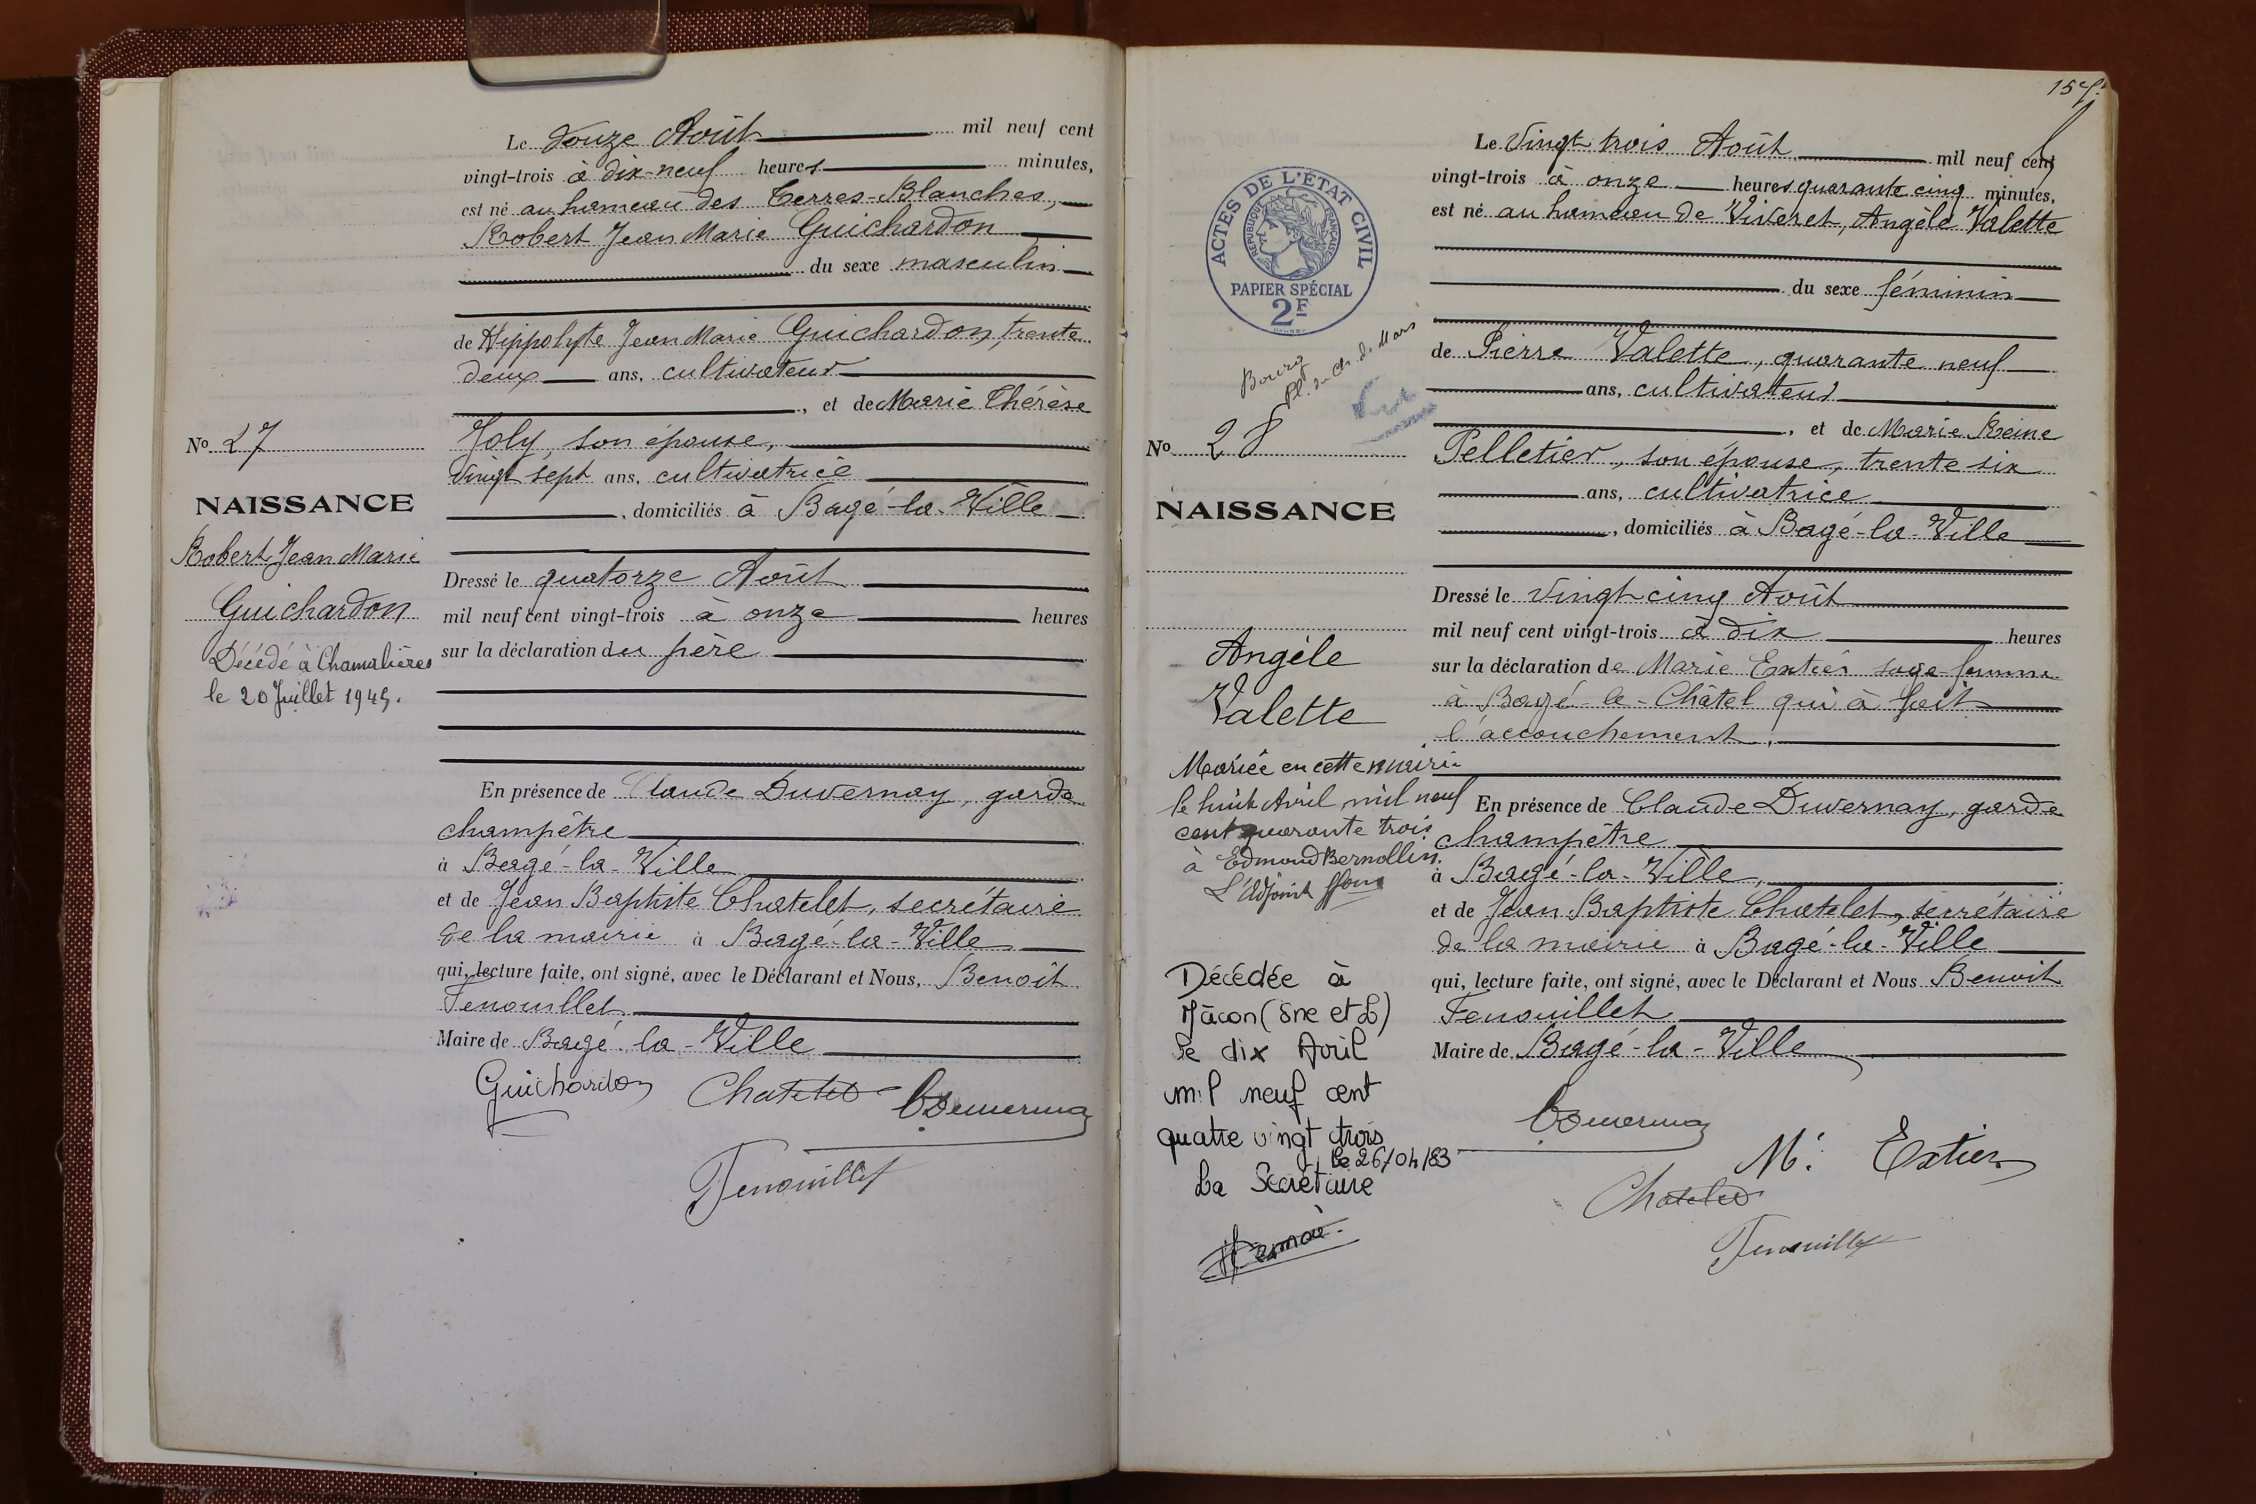 Le Douze Août mil neuf cent
vingt-trois à dix-neuf heures minutes,
est né au hameau des Terres-Blanches,
Robert Jean Marie Guichardon
du sexe masculin
de Hippolyte Jean Marie Guichardon, trente
deux ans, cultivateur
, et de Marie Thérèse
Joly, son épouse,
vingt sept ans, cultivatrice
, domiciliés à Bagé-la-Ville
Dressé le quatorze Août
mil neuf cent vingt-trois à onze heures
sur la déclaration du père
En présence de Claude Duvernay, garde
champêtre
à Bagé-la-Ville
et de Jean Baptiste Chatelet, secrétaire
de la mairie à Bagé-la-Ville
qui, lecture faite, ont signé, avec le Déclarant et Nous, Benoît
Fenouillet
Maire de Bagé-la-Ville
Guichardon Chatelet
Fenouillet
No 27
NAISSANCE
Robert Jean Marie
Guichardon
Décédé à Chamalières
le 20 Juillet 1945.
157
Le Vingt trois Août mil neuf cent
vingt-trois à onze heures quarante cinq minutes,
est né au hameau de Visseret, Angèle Valette
du sexe féminin
de Pierre Valette, quarante neuf
ans, cultivateur
, et de Marie Reine
Pelletier, son épouse, trente six
ans, cultivatrice
, domiciliés à Bagé-la-Ville
Dressé le vingt cinq Août
mil neuf cent vingt-trois à dix heures
sur la déclaration de Marie Extier sage-femme
à Bagé-le-Châtel qui à fait
l'accouchement,
En présence de Claude Duvernay, garde
champetre
à Bagé-la-Ville,
et de Jean Baptiste Chatelet, secrétaire
de la mairie à Bagé-la-Ville
qui, lecture faite, ont signé, avec le Déclarant et Nous Benoit
Fenouillet
Maire de Bagé-la-Ville
M. Extier
Chatelet
Fenouillet
ACTES DE L'ÉTAT CIVIL
RÉPUBLIQUE FRANÇAISE
PAPIER SPÉCIAL
2F
Bourg
Pl. du Ch. de Mars
No 28
NAISSANCE
Angèle
Valette
Mariée en cette mairie
le huit Avril mil neuf
cent quarante trois
à Edmond Bernollin.
L'Adjoint
Décédée à
Mâcon (Sne et L)
le dix Avril
mil neuf cent
quatre vingt trois
le 26/04/83
La Secrétaire